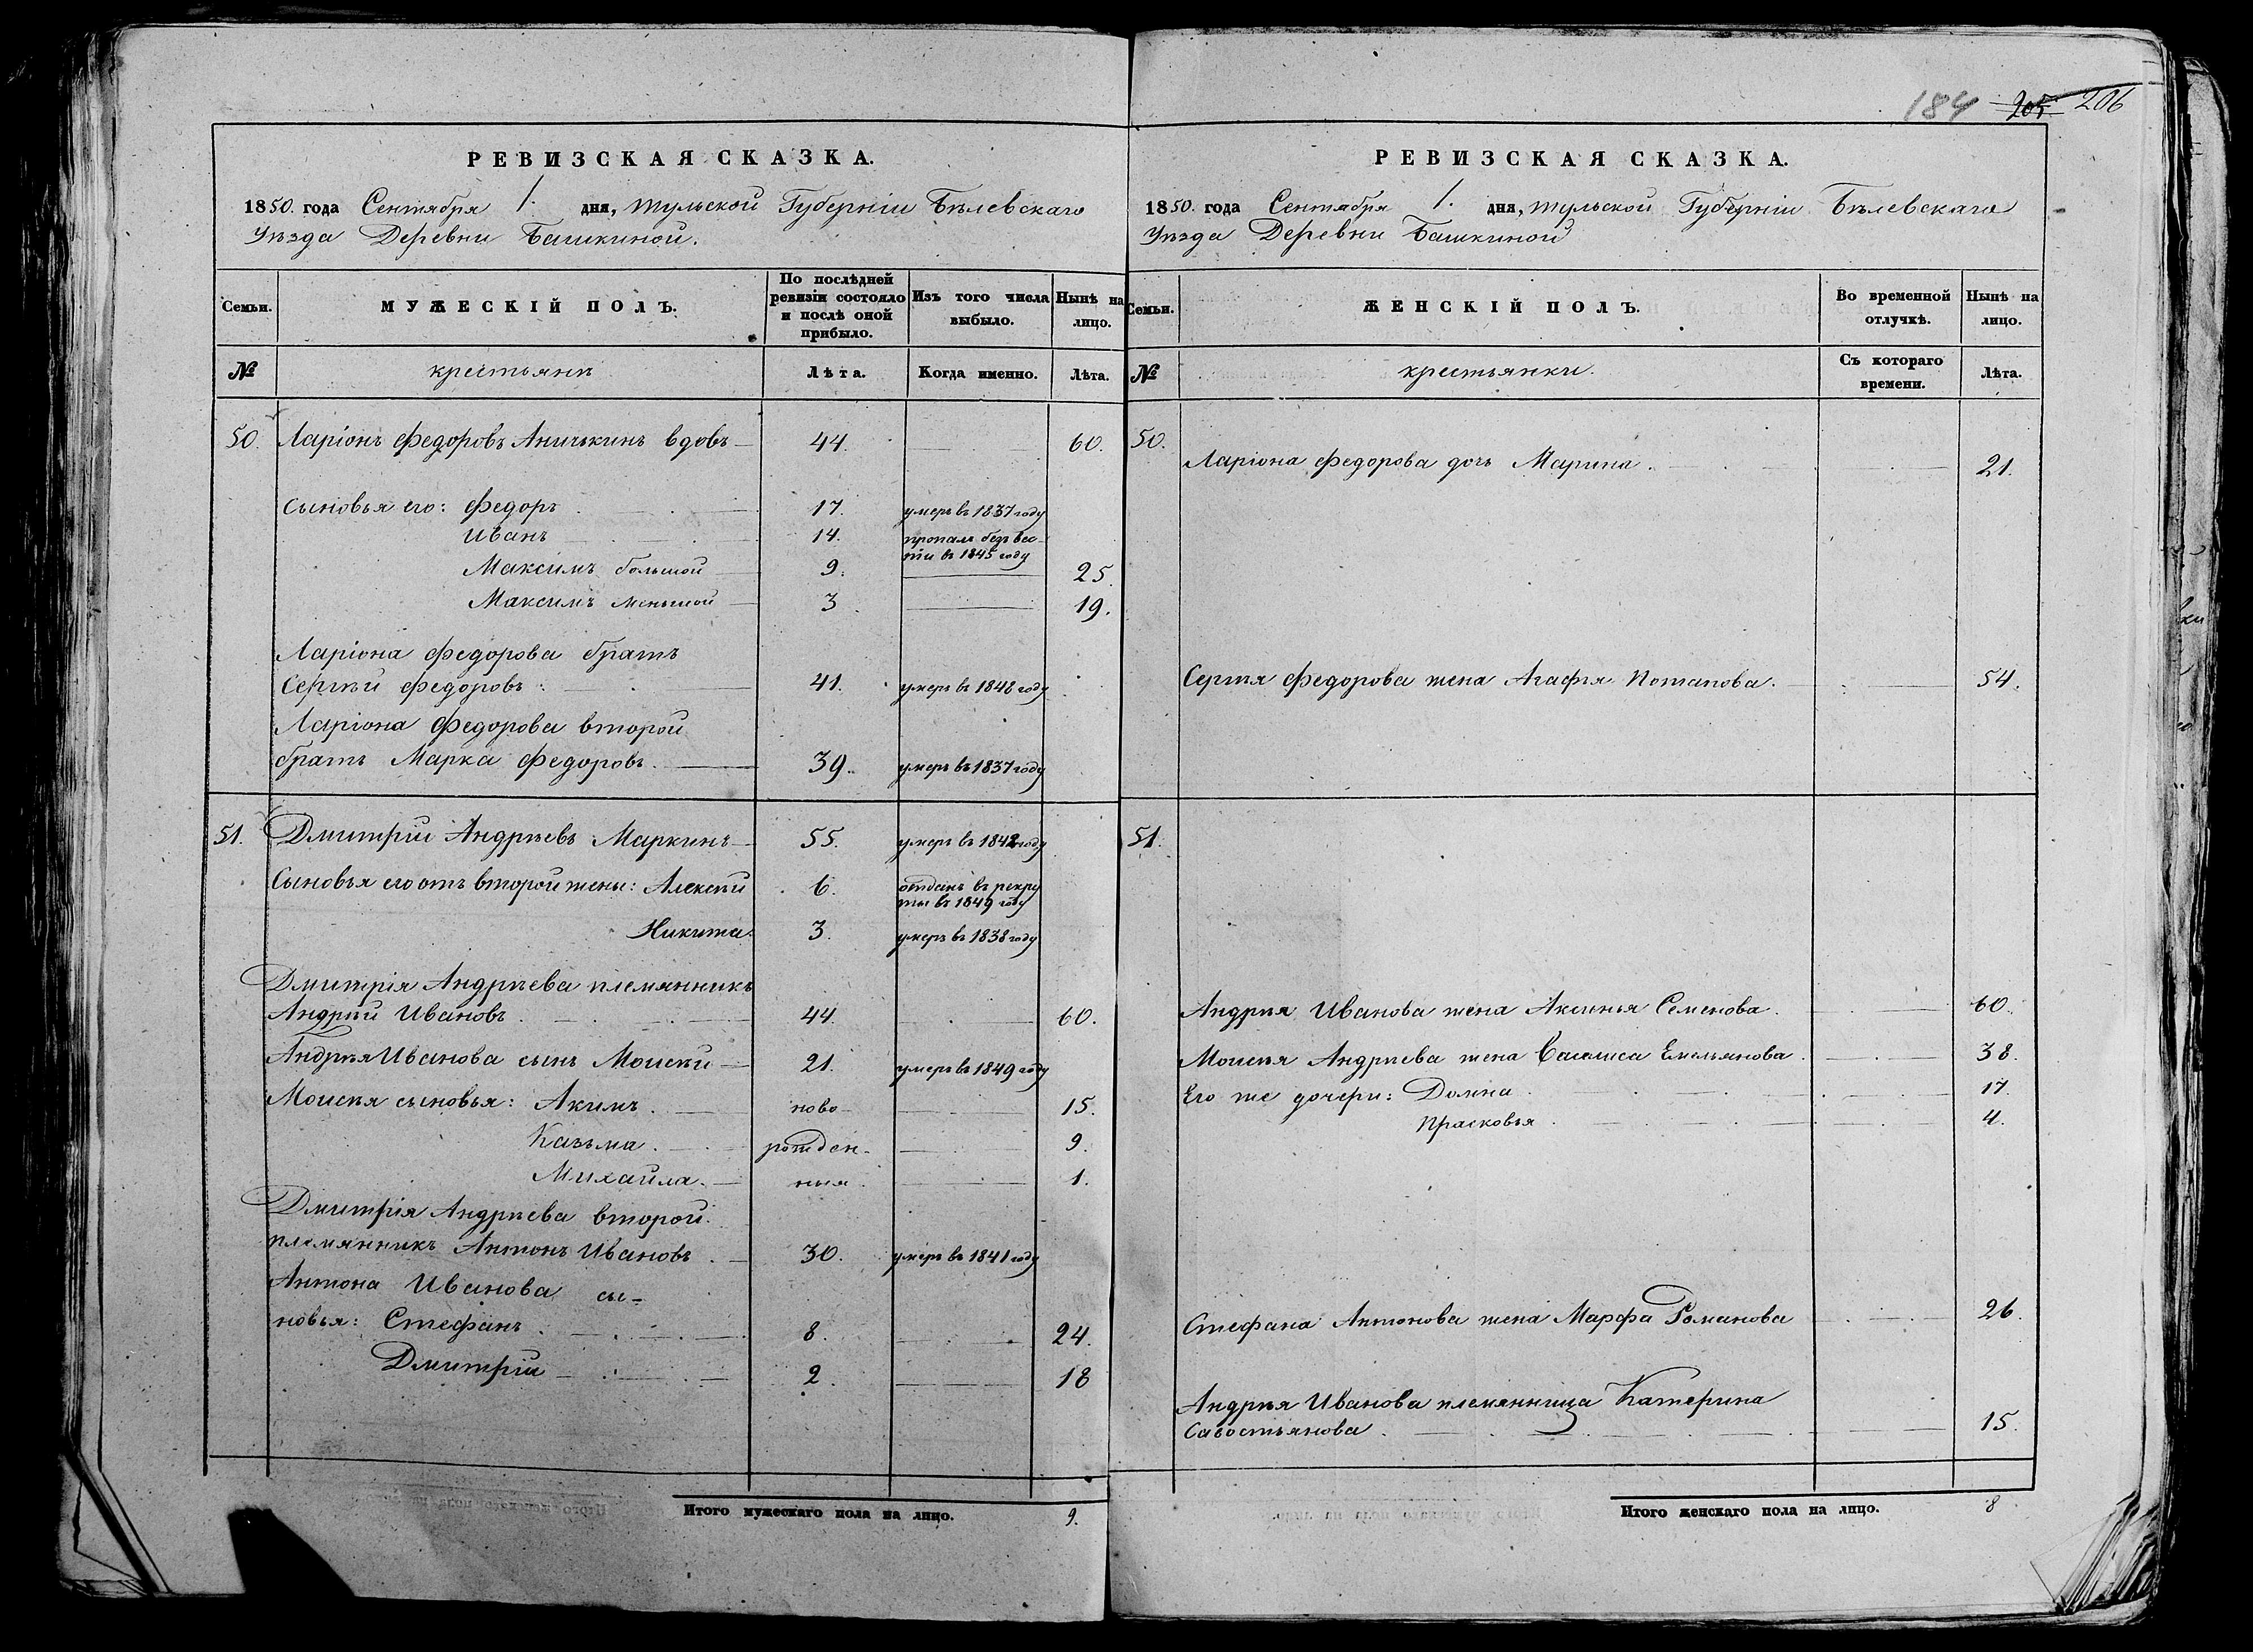 184 205 206
РЕВИЗСКАЯ СКАЗКА.
1850. года Сентября 1. дня, Тульской Губерніи Бѣлевскаго
Уѣзда Деревни Башкиной.
Семьи. МУЖЕСКІЙ ПОЛЪ. По послѣдней ревизіи состояло и послѣ оной прибыло. Изъ того числа выбыло. Нынѣ на лицо.
№ крестьянъ Лѣта. Когда именно. Лѣта.
50. Ларіонъ Федоровъ Аничкинъ вдовъ 44. 60.
Сыновья его: Федоръ 17. умеръ въ 1837 году
Иванъ 14. пропалъ безъ вес-
ти въ 1845 году
Максимъ большой 9. 25.
Максимъ меньшой 3. 19.
Ларіона Федорова братъ
Сергѣй Федоровъ 41. умеръ въ 1848 году
Ларіона Федорова второй
братъ Марка Федоровъ. 39. умеръ въ 1837 году
51. Дмитрій Андрѣевъ Маркинъ 55. умеръ въ 1842 году
Сыновья его отъ второй жены: Алексѣй 6. отданъ въ рекру
ты въ 1849 году
Никита 3. умеръ въ 1838 году
Дмитрія Андрѣева племянникъ
Андрѣй Ивановъ. 44. 60.
Андрѣя Иванова сынъ Моисѣй 21. умеръ въ 1849 году
Моисѣя сыновья: Акимъ. ново- 15.
Казьма. рожден- 9.
Михайла. ныя. 1.
Дмитрія Андрѣева второй
племянникъ Антонъ Ивановъ. 30. умеръ въ 1841 году
Антона Иванова сы-
новья: Стефанъ. 8. 24.
Дмитрій 2. 18
Итого мужескаго пола на лицо. 9.
РЕВИЗСКАЯ СКАЗКА.
1850. года Сентября 1. дня, Тульской Губерніи Бѣлевскаго
Уѣзда Деревни Башкиной
Семьи. ЖЕНСКІЙ ПОЛЪ. Во временной отлучкѣ. Нынѣ на лицо.
№ крестьянки. Съ котораго времени. Лѣта.
50.
Ларіона Федорова дочь Марина. 21.
Сергѣя Федорова жена Агафья Потапова. 54.
51.
Андрѣя Иванова жена Аксинья Семенова. 60.
Моисѣя Андрѣева жена Василиса Емельянова. 38.
Его же дочери: Домна. 17.
Прасковья. 4.
Стефана Антонова жена Марфа Романова 26.
Андрѣя Иванова племянница Катерина
Савостьянова. 15.
Итого женскаго пола на лицо. 8